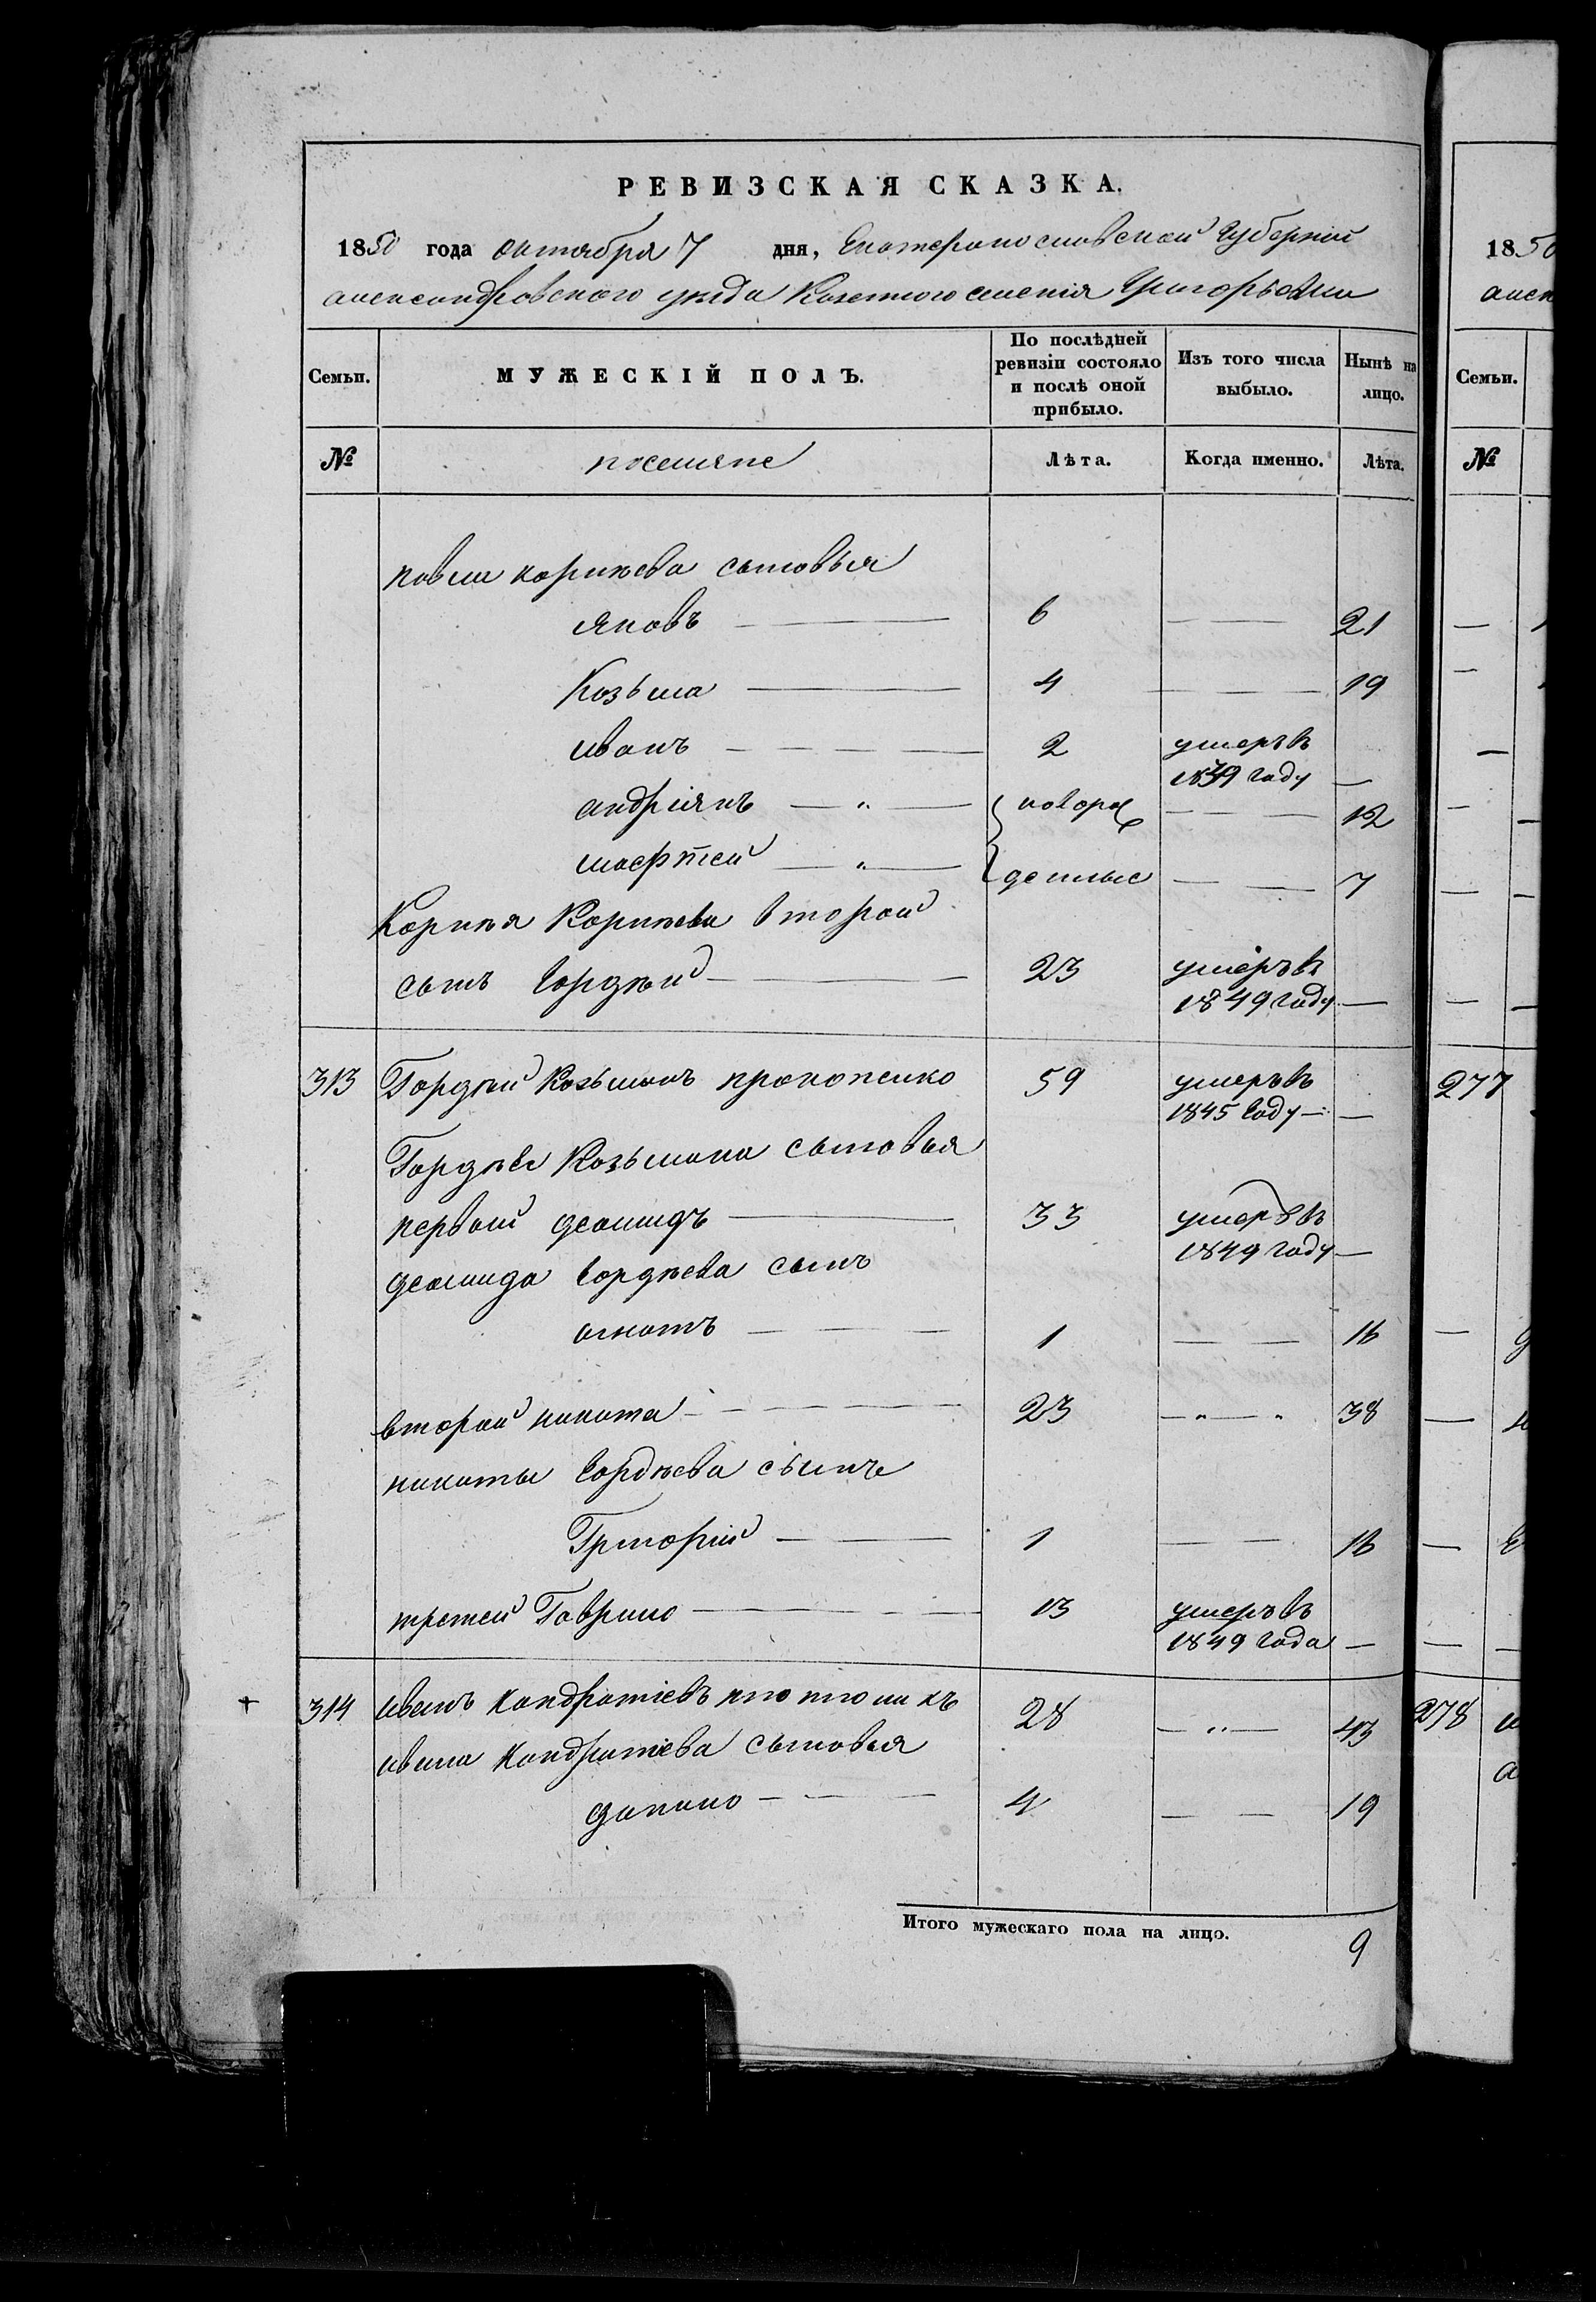 РЕВИЗСКАЯ СКАЗКА.
1850 года октября 7 дня, Екатеринославской Губерніи
александровского уезда Казенного селенія Григорьевки
Семьи.
МУЖЕСКІЙ ПОЛЪ.
По послѣдней ревизіи состояло и послѣ оной прибыло.
Изъ того числа выбыло.
Нынѣ на лицо.
№
поселяне
Лѣта.
Когда именно.
Лѣта.
павла корнѣева сыновья
яковъ 6 — — 21
Козьма 4 — — 19
иванъ 2 умеръ въ
1849 году —
андріянъ — " — новоро — — 12
— " — денные — — 7
Корнѣя Корнѣева второй
сынъ Гордѣй — 23 умеръ въ
1849 году —
313 Гордѣй Козьминъ прокопенко 59 умеръ въ
1845 году — —
Гордѣя Козьмина сыновья
первой деомидъ — 33 умеръ въ
1849 году —
деомида Гордѣева сынъ
игнатъ — 1 — — 16
второй никита — 23 — " — " 38
никиты Гордѣева сынъ
Григорій — 1 — — 16
третей Гаврило — 13 умеръ въ
1849 года —
+ 314 иванъ Кондратіевъ плотникъ 28 — " — 43
ивана Кондратіева сыновья
данило — 4 — — 19
Итого мужескаго пола на лицо.
9
1850
алек
Семьи.
№
277
278